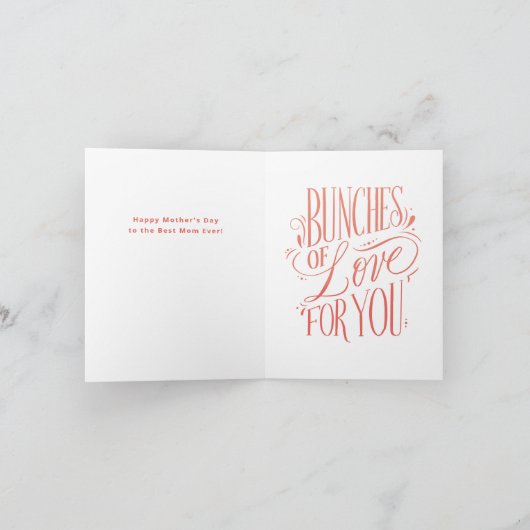 Happy Mother's Day
to the Best Mom Ever!
BUNCHES
OF Love
FOR YOU